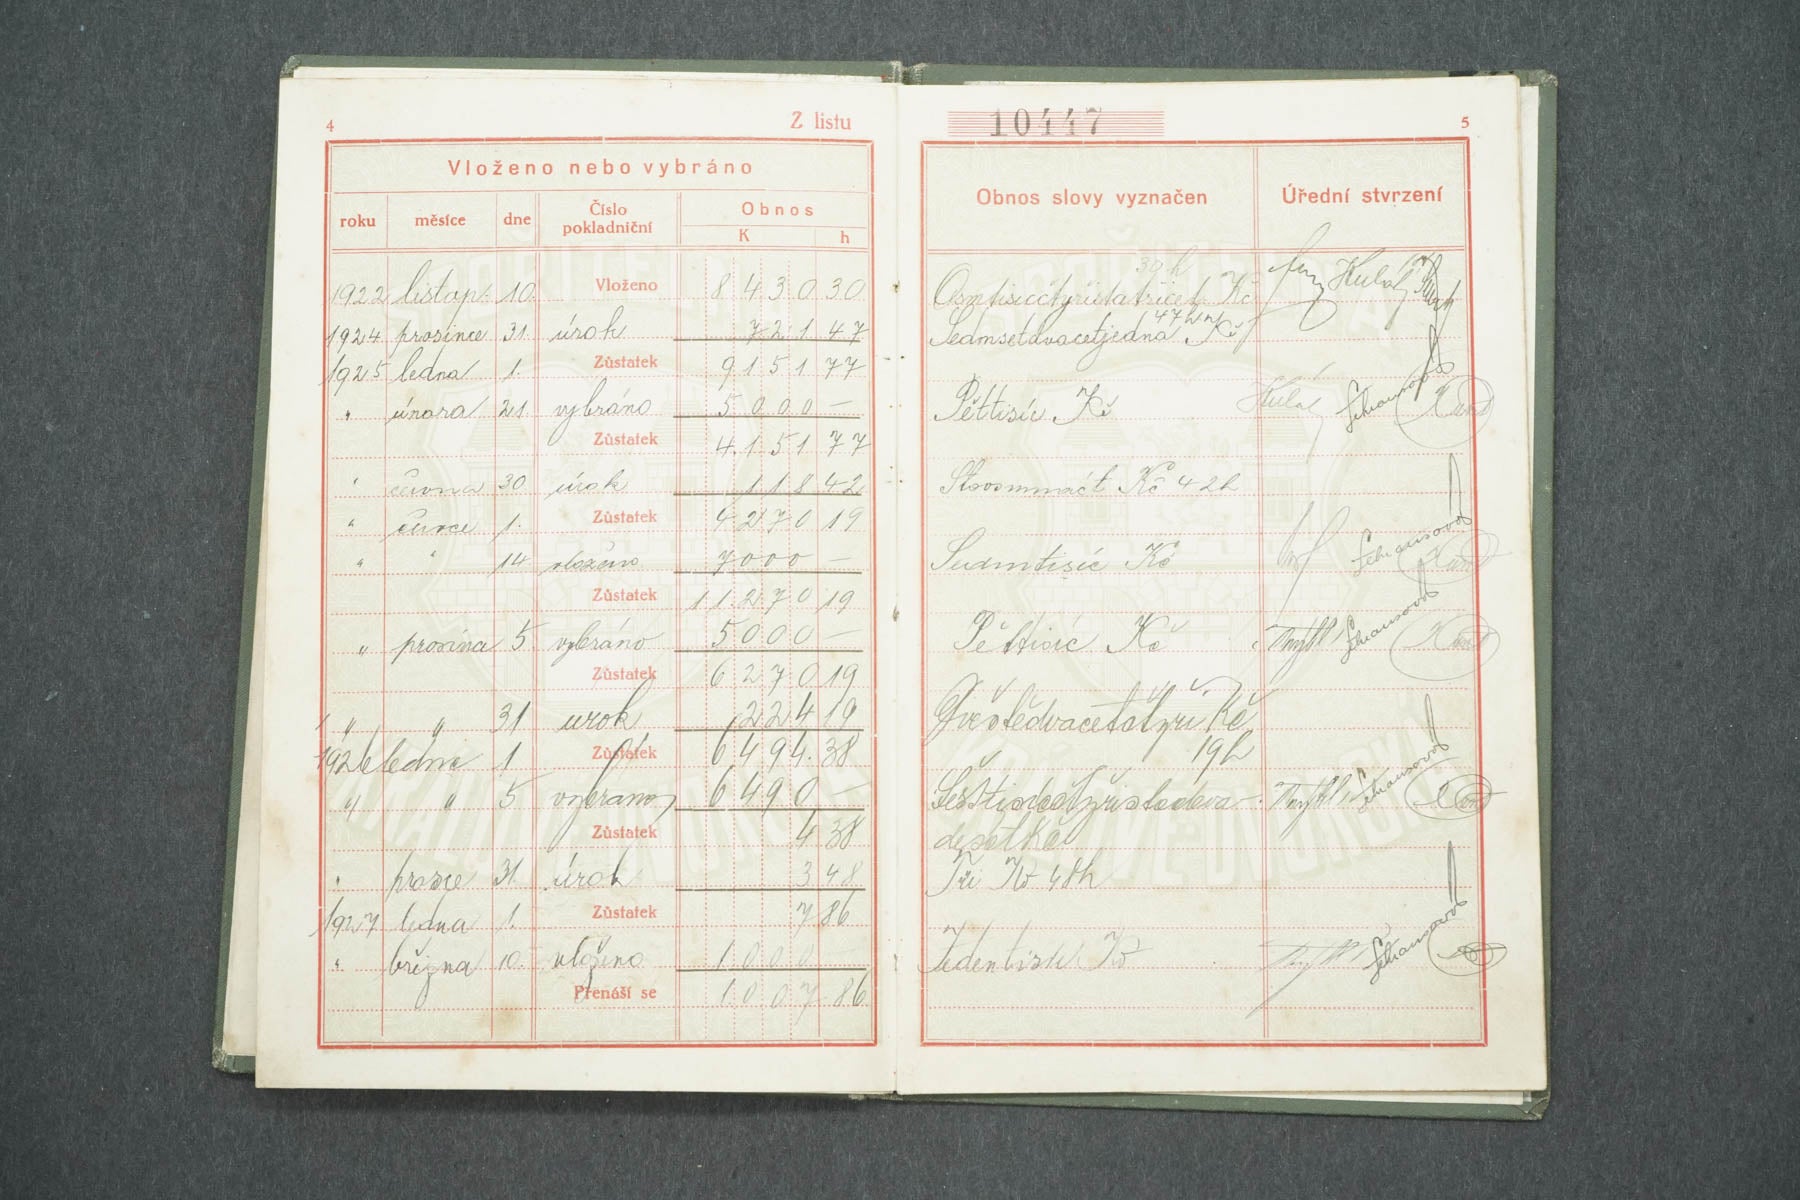 4
Z listu
10447
5
Vloženo nebo vybráno
Obnos slovy vyznačen
Úřední stvrzení
roku měsíce dne Číslo pokladniční Obnos
K h
1922 listop. 10. Vloženo 8430 30
30 h
Osmtisícčtyřistatřicet Kč
1924 prosince 31. úrok 721 47
47 h
Sedmsetdvacetjedna Kč
1925 ledna 1. Zůstatek 9151 77
" února 21. vybráno 5000 —
Pěttisíc Kč
Zůstatek 4.151 77
" června 30 úrok 118 42
Stoosmnáct Kč 42h
" čurce 1. Zůstatek 4270 19
" " 14 vloženo 7000 —
Sedmtisíc Kč
Zůstatek 11.270 19
" prosince 5 vybráno 5000 —
Pěttisíc Kč
Zůstatek 6270 19
" " 31 úrok 224 19
Dvěstědvacetčtyři Kč
19h
1926 ledna 1 Zůstatek 6494.38
" " 5 vybráno 6490 —
Šesttisícčtyřistadeva-
desátKč
Zůstatek 4 38
" prosce 31. úrok 3 48
Tři Kč 48h
1927 ledna 1. Zůstatek 7 86
" března 10. vloženo 1000 —
Jedentisíc Kč
Přenáší se 1.007 86